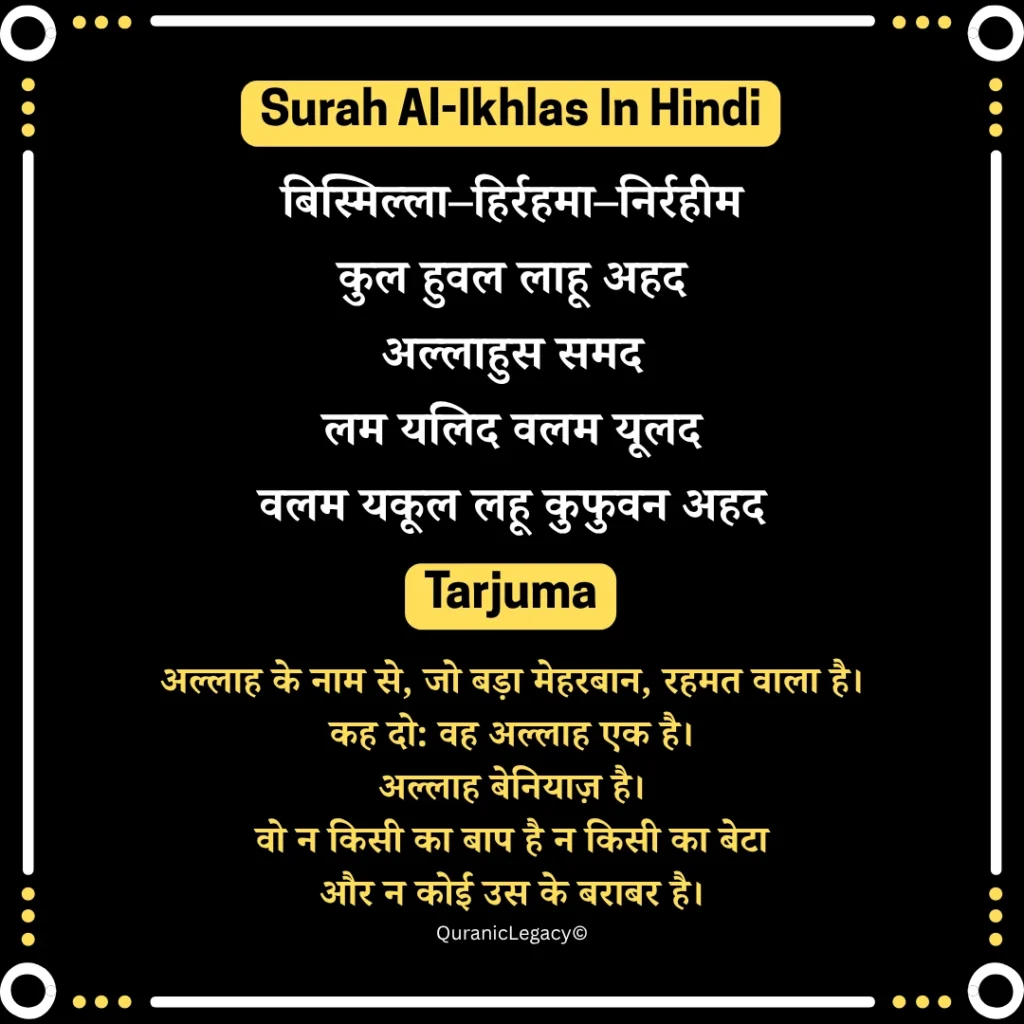 Surah Al-Ikhlas In Hindi
बिस्मिल्ला–हिर्रहमा–निर्रहीम
कुल हुवल लाहू अहद
अल्लाहुस समद
लम यलिद वलम यूलद
वलम यकूल लहू कुफुवन अहद
Tarjuma
अल्लाह के नाम से, जो बड़ा मेहरबान, रहमत वाला है।
कह दो: वह अल्लाह एक है।
अल्लाह बेनियाज़ है।
वो न किसी का बाप है न किसी का बेटा
और न कोई उस के बराबर है।
QuranicLegacy©